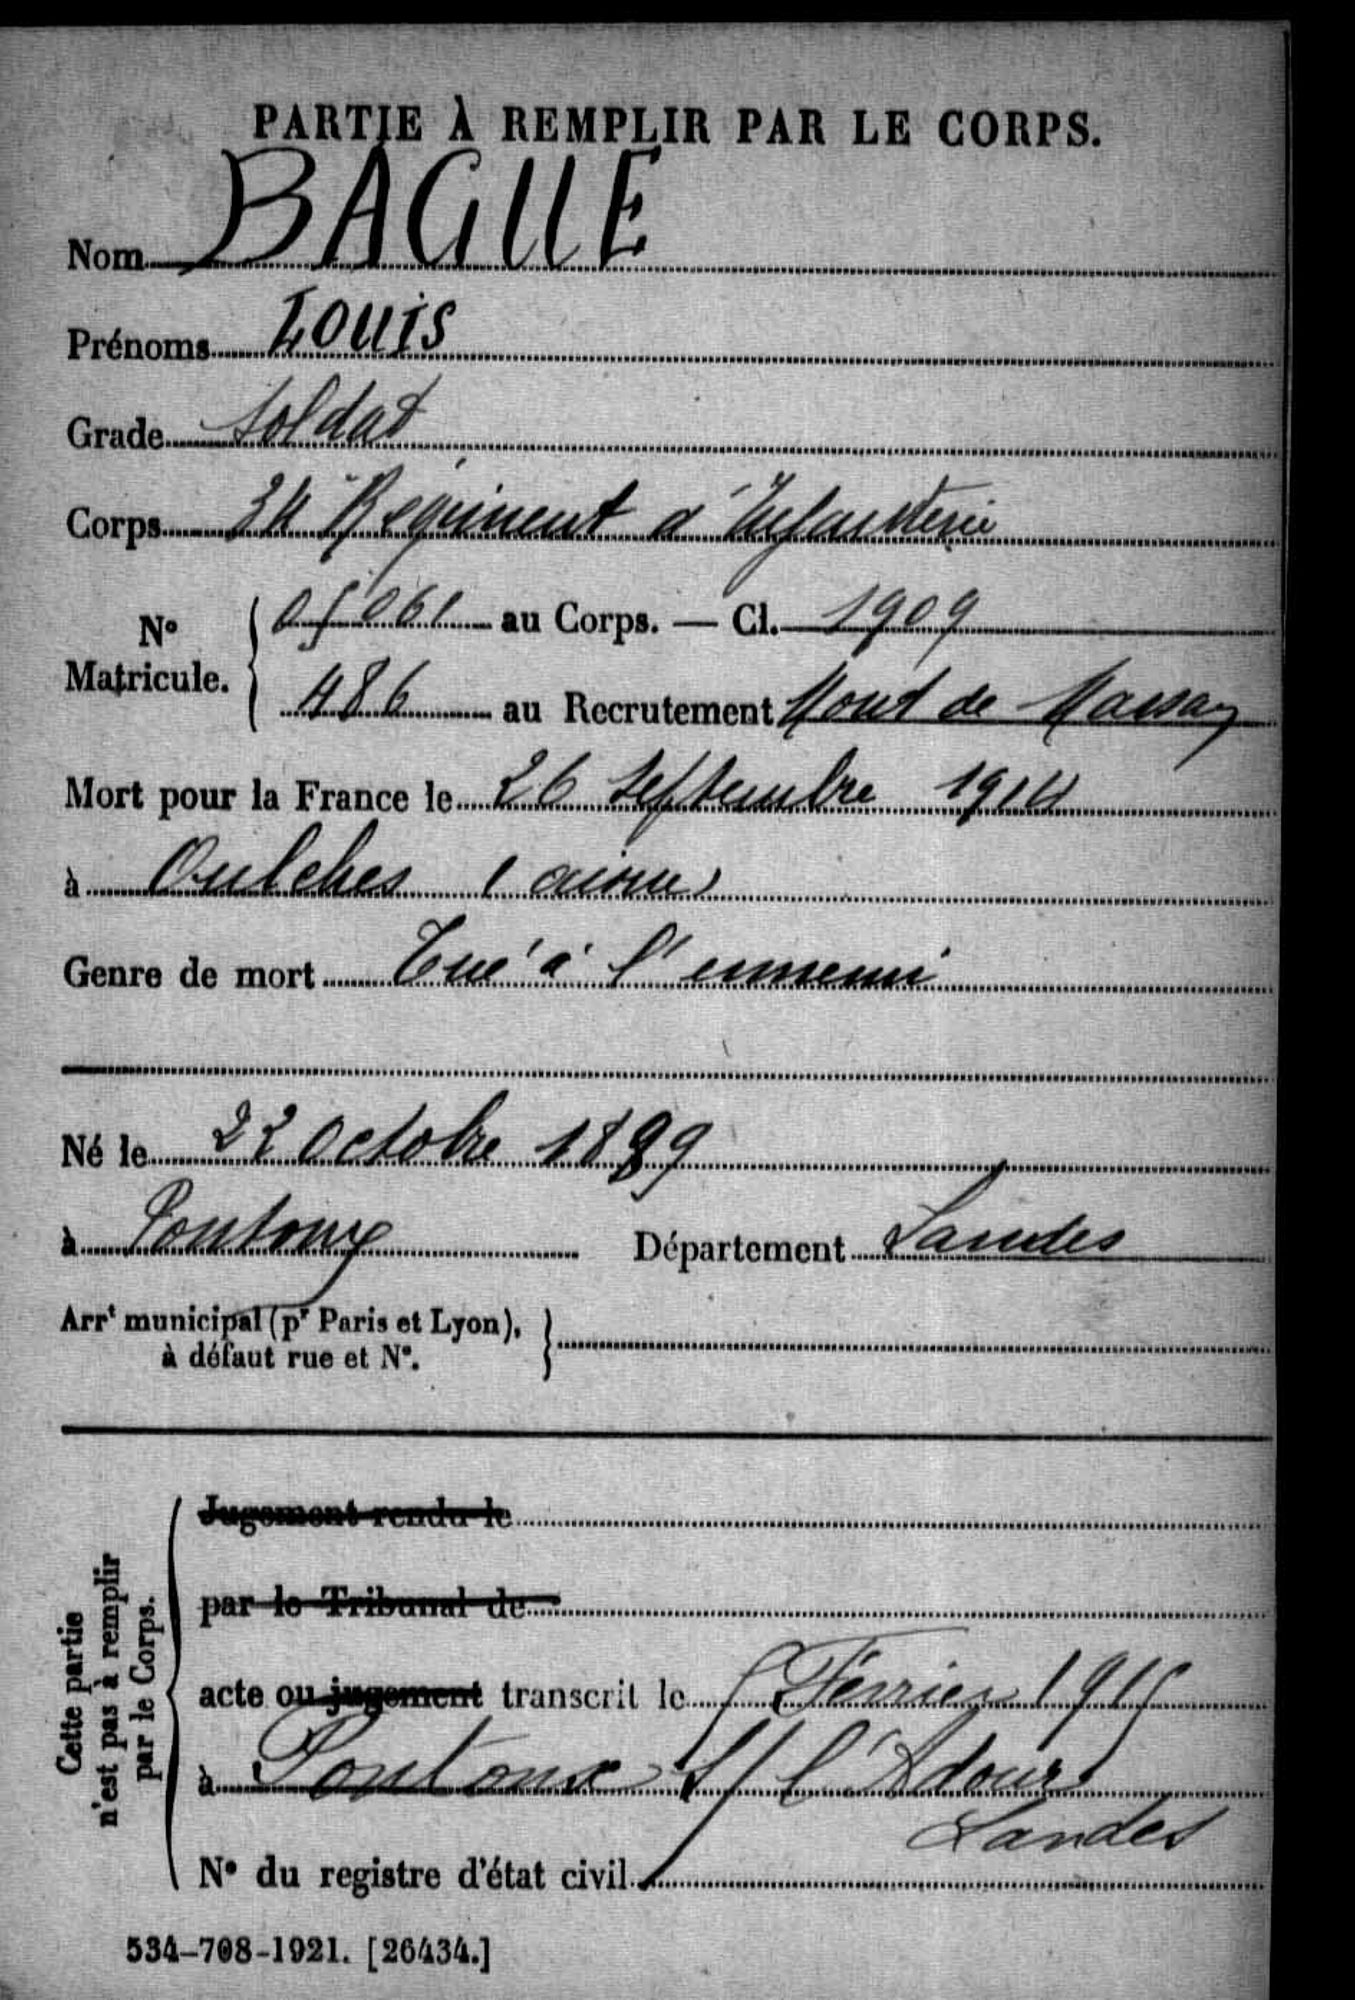 PARTIE À REMPLIR PAR LE CORPS.
Nom BAGUE
Prénoms Louis
Grade Soldat
Corps 34 Régiment d'Infanterie
N° Matricule. 05061 au Corps. — Cl. 1909
486 au Recrutement Mont de Marsan
Mort pour la France le 26 Septembre 1914
à Oulches (aisne)
Genre de mort Tué à l'ennemi
Né le 22 Octobre 1889
à Pontonx Département Landes
Arrt municipal (pr Paris et Lyon),
à défaut rue et N°.
Cette partie
n'est pas à remplir
par le Corps.
Jugement rendu le
par le Tribunal de
acte ou jugement transcrit le 5 Février 1915
à Pontonx s/ l'Adour
Landes
N° du registre d'état civil
534-708-1921. [26434.]